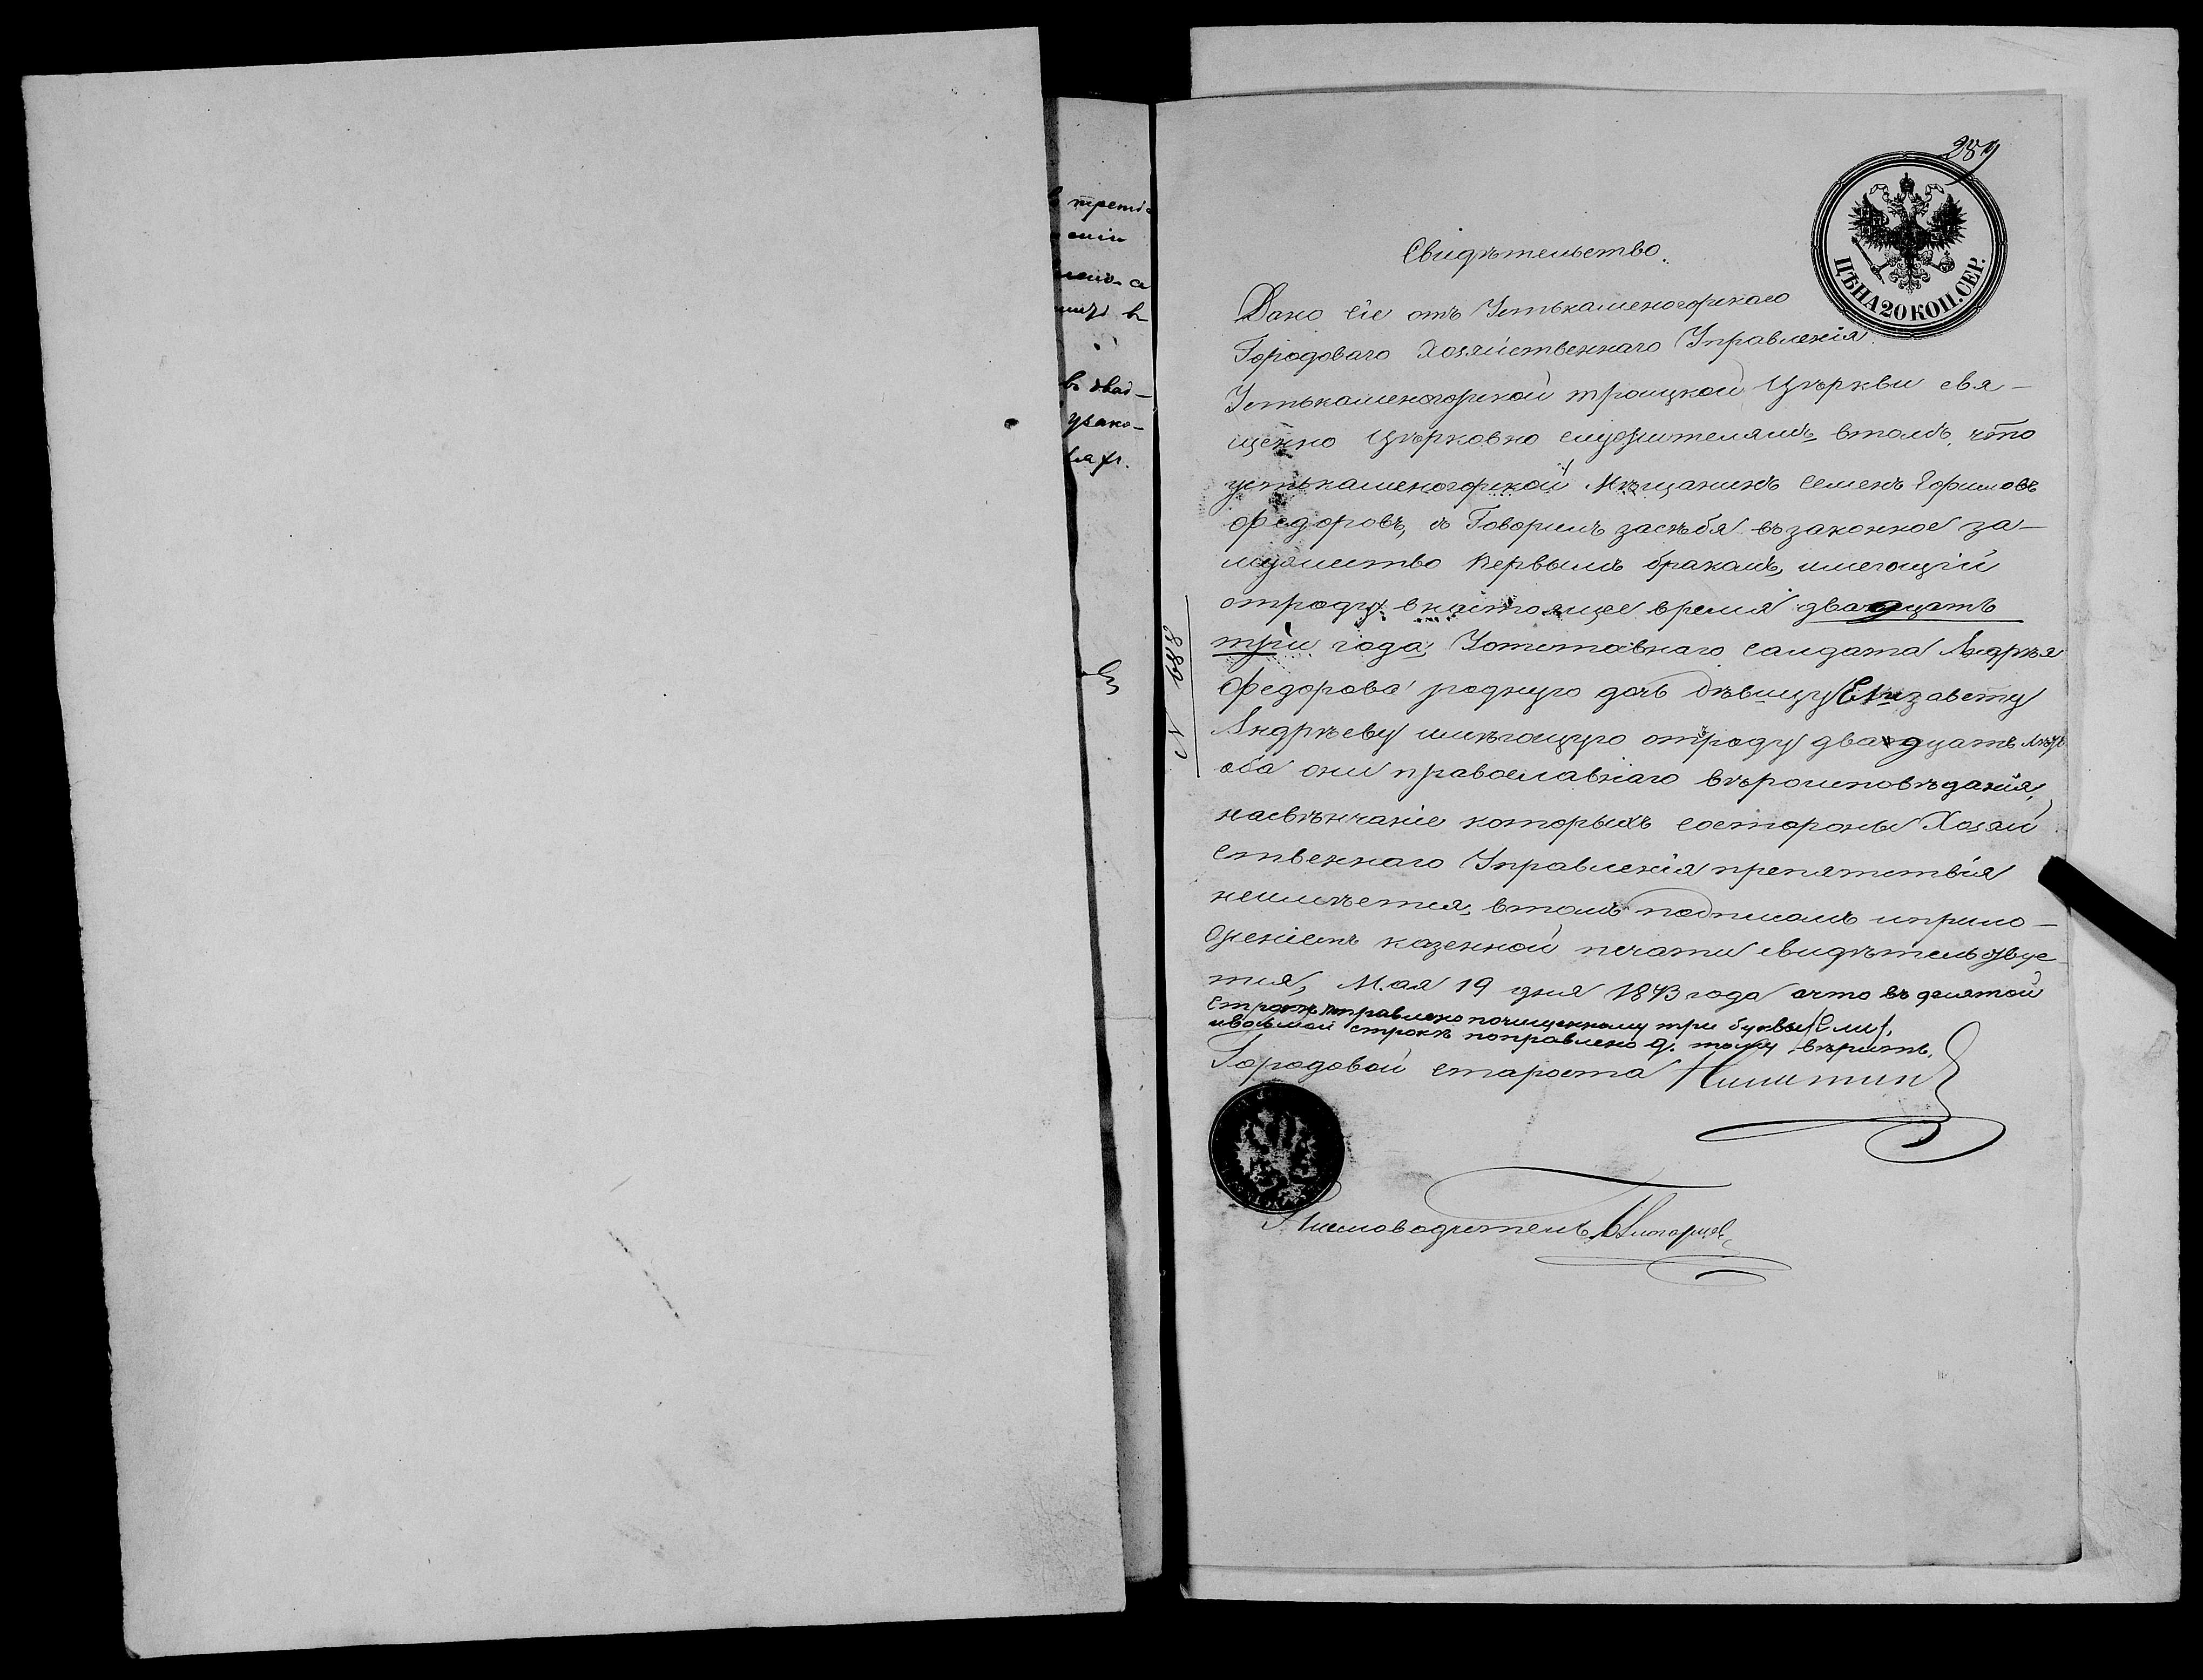 въ трети-
ъ двад-
узако-
289
ЦѢНА 20 КОП. СЕР.
Свидѣтельство.
Дано сіе отъ Устькаменогорскаго
Городоваго Хозяйственнаго Управленія
Устькаменогорской троицкой Цѣркви свя-
щенно Цѣрковно служителямъ втомъ, что
устькаменогорской Мѣщанинъ Семенъ Ефимовъ
Федоровъ, з Говорилъ засѣбя въ законное за-
мужество первымъ бракомъ, имеющій
отроду внастоящее время двадцать
три года, Уотставнаго салдата Андрѣя
Федорова родную дочь дѣвицу Елизавету
Андрѣеву имѣющую отроду двадцать лѣтъ
оба они православнаго вѣроисповѣданія,
насвѣнчаніе которыхъ состороны Хозяй
ственнаго Управленія препятствія
неимѣется, втомъ подписомъ иприло-
женіемъ казенной печати свидѣтельствуе-
тся, Мая 19 дня 1873 года ачто въ десятой
строкѣ поправлено почищенному три буквы /Ели/,
ивосьмой строкѣ поправлено д. тому вѣрить.
Городовой староста Никитин
Письмоводитель
N 883